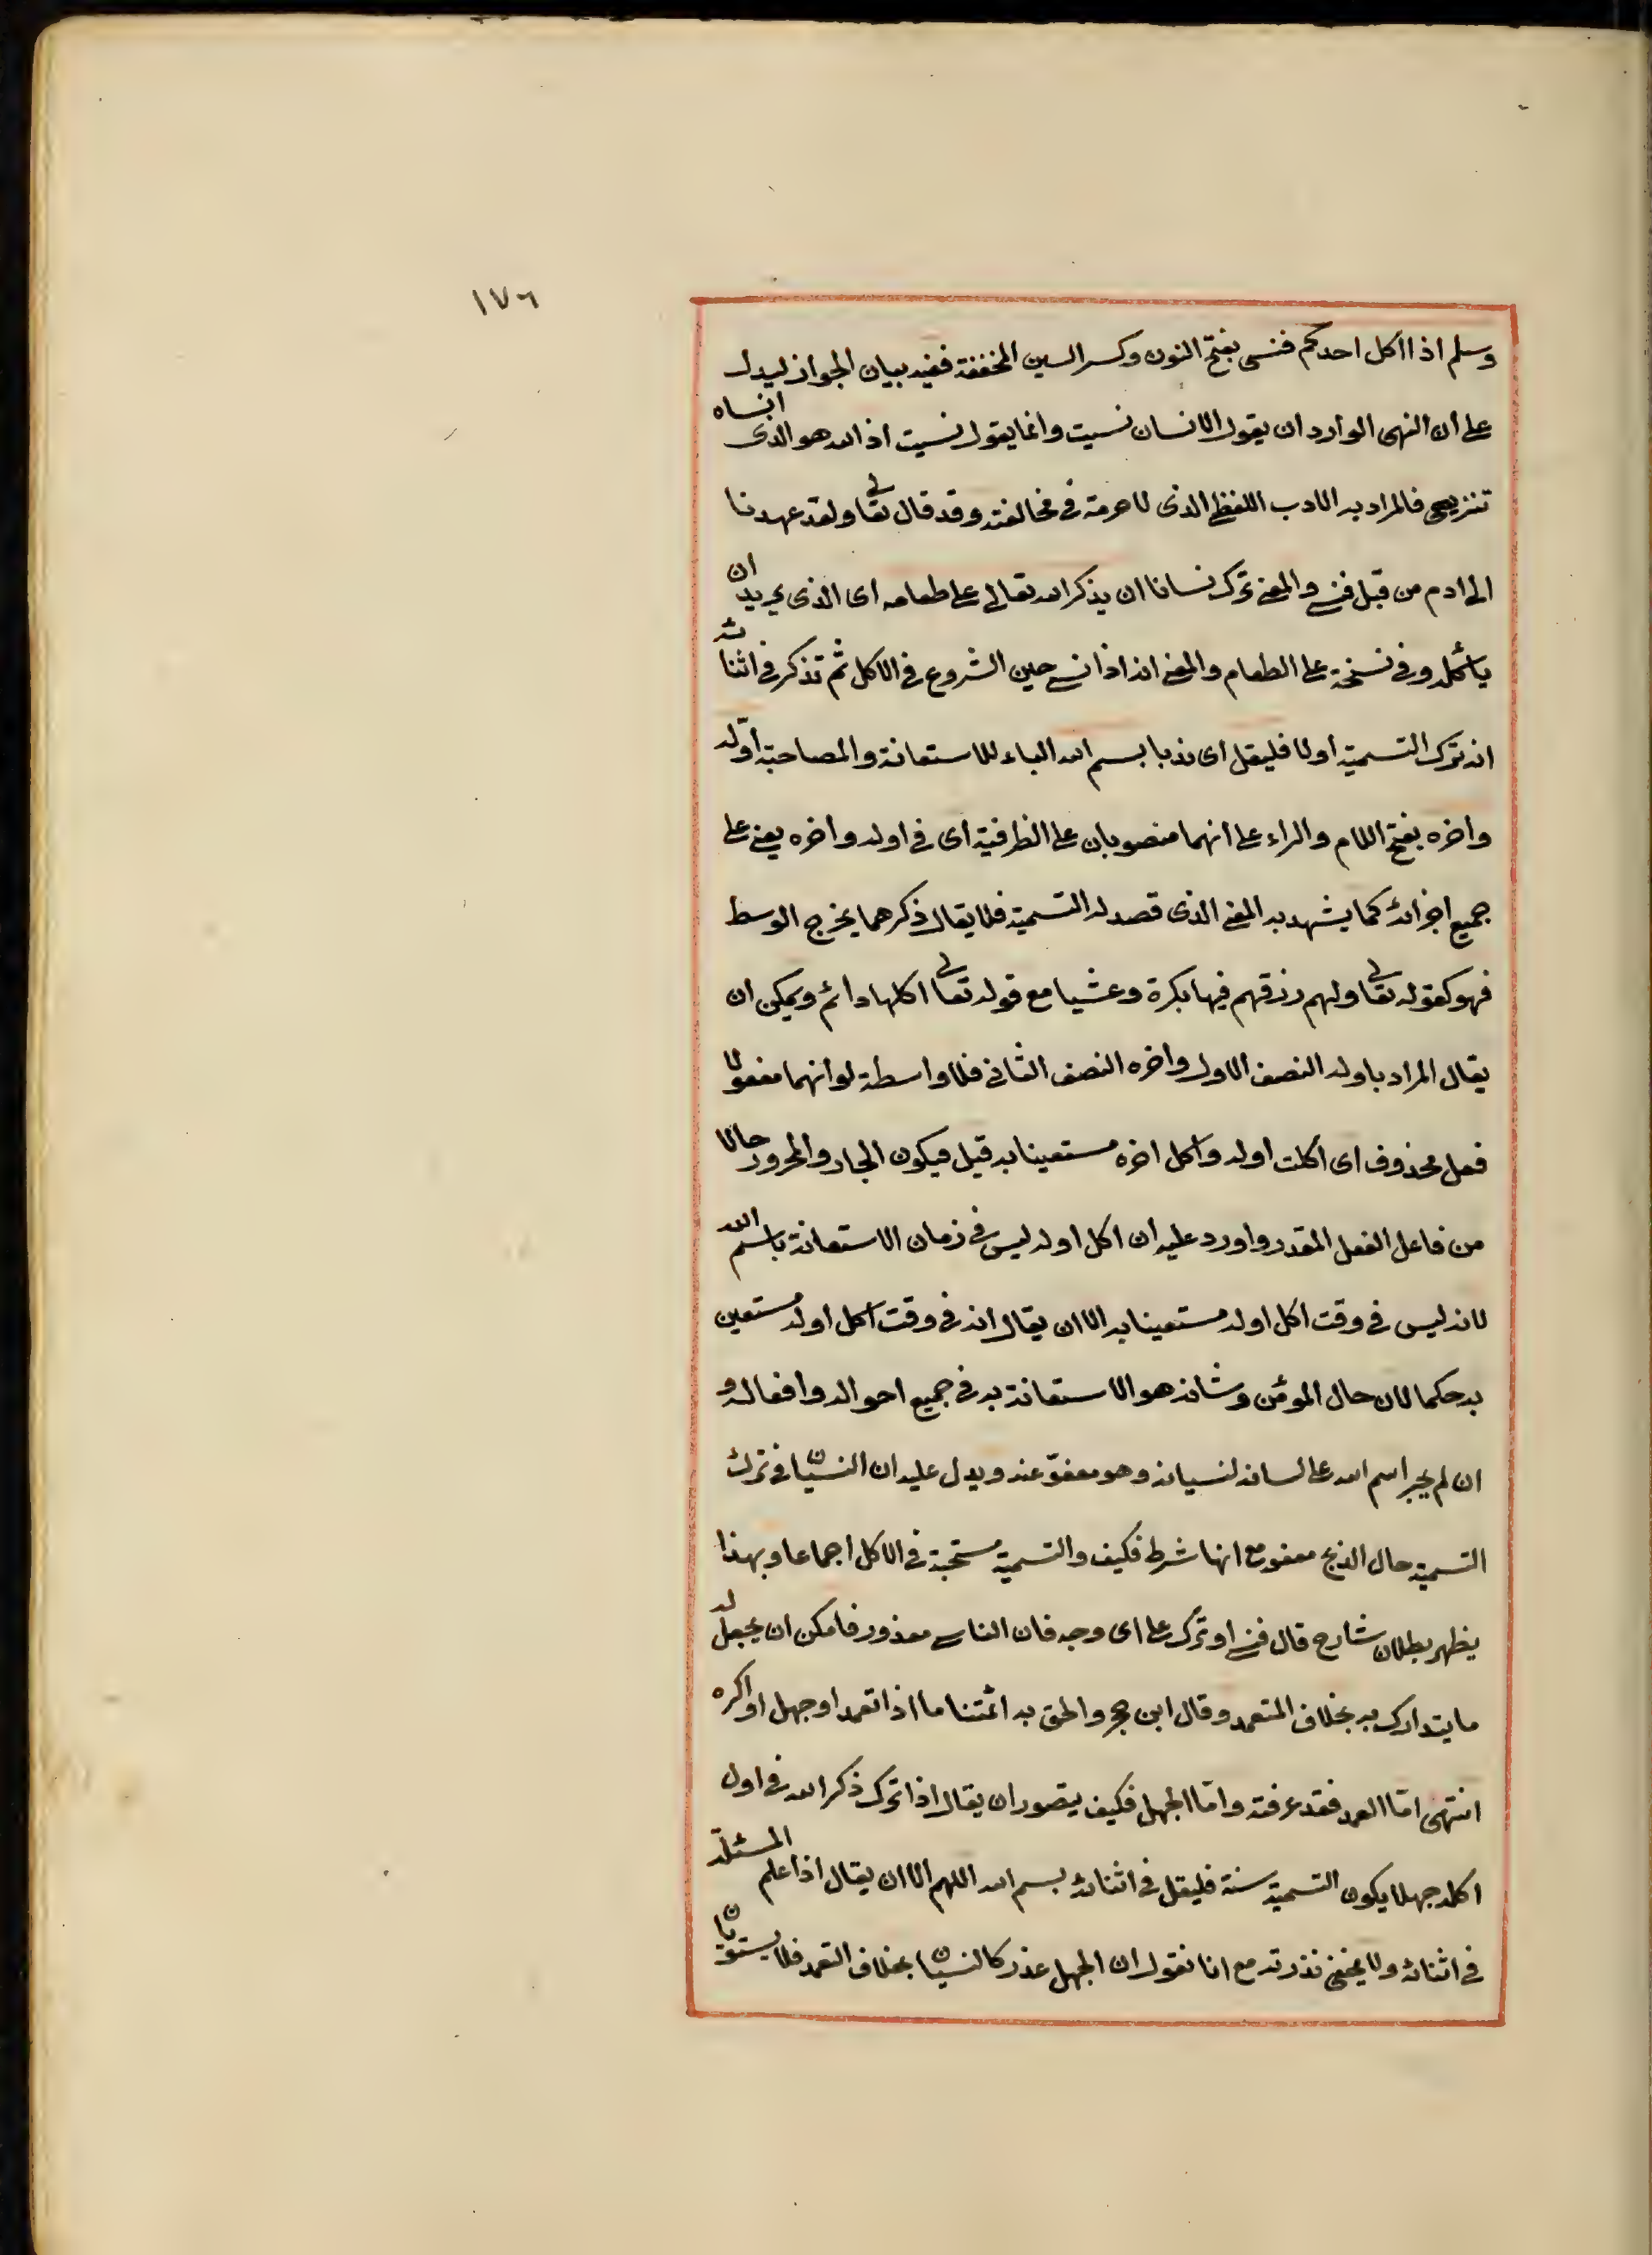 ١٧٦
وسلم اذا اكل احدكم فنسى بفتح النون وكسر السين المخففة ففيه بيان الجواز ليدل
على ان النهى الوارد ان يقول الانسان نسيت وانما يقول نسيت اذ الله هو الذى انساه
تنزيهى فالمراد به الادب اللفظى الذى لا حرمة فى مخالفته وقد قال تعالى ولقد عهدنا
الى ادم من قبل فنسى والمعنى ترك نسيانا ان يذكر الله تعالى على طعامه اى الذى يريد ان
ياكله وفى نسخة على الطعام والمعنى انه اذا نسى حين الشروع فى الاكل ثم تذكر فى اثنائه
انه ترك التسمية اولا فليقل اى ندبا بسم الله الباء للاستعانة والمصاحبة اوله
واخره بفتح اللام والراء على انهما منصوبان على الظرفية اى فى اوله واخره يعنى على
جميع اجزائه كما يشهد به المعنى الذى قصد له التسمية فلا يقال ذكرهما يخرج الوسط
فهو كقوله تعالى ولهم رزقهم فيها بكرة وعشيا مع قوله تعالى اكلها دائم ويمكن ان
يقال المراد باوله النصف الاول واخره النصف الثانى فلا واسطة لو انهما مفعولا
فعل محذوف اى اكلت اوله واكل اخره مستعينا به قيل فيكون الجار والمجرور حالا
من فاعل الفعل المقدر واورد عليه ان اكل اوله ليس فى زمان الاستعانة باسم الله
لانه ليس فى وقت اكل اوله مستعينا به الا ان يقال انه فى وقت اكل اوله مستعين
به حكما لان حال المؤمن وشانه هو الاستعانة به فى جميع احواله وافعاله و
ان لم يجر اسم الله على لسانه لنسيانه وهو معفوّ عنه ويدل عليه ان النسيان فى ترك
التسمية حال الذبح معفو مع انها شرط فكيف والتسمية مستحبة فى الاكل اجماعا وبهذا
يظهر بطلان شارح قال فنسى او ترك على اى وجه فان الناسى معذور فامكن ان يجعل له
ما يتدارك به بخلاف المتعمد وقال ابن حجر والحق به ائمتنا ما اذا تعمد او جهل او اكره
انتهى امّا العمد فقد عرفته وامّا الجهل فكيف يتصور ان يقال اذا ترك ذكر الله فى اول
اكله جهلا يكون التسمية سنة فليقل فى اثنائه بسم الله اللهم الا ان يقال اذا علم المسئلة
فى اثنائه ولا يخفى ندرته مع انا نقول ان الجهل عذر كالنسيان بخلاف التعمد فلا يستويان